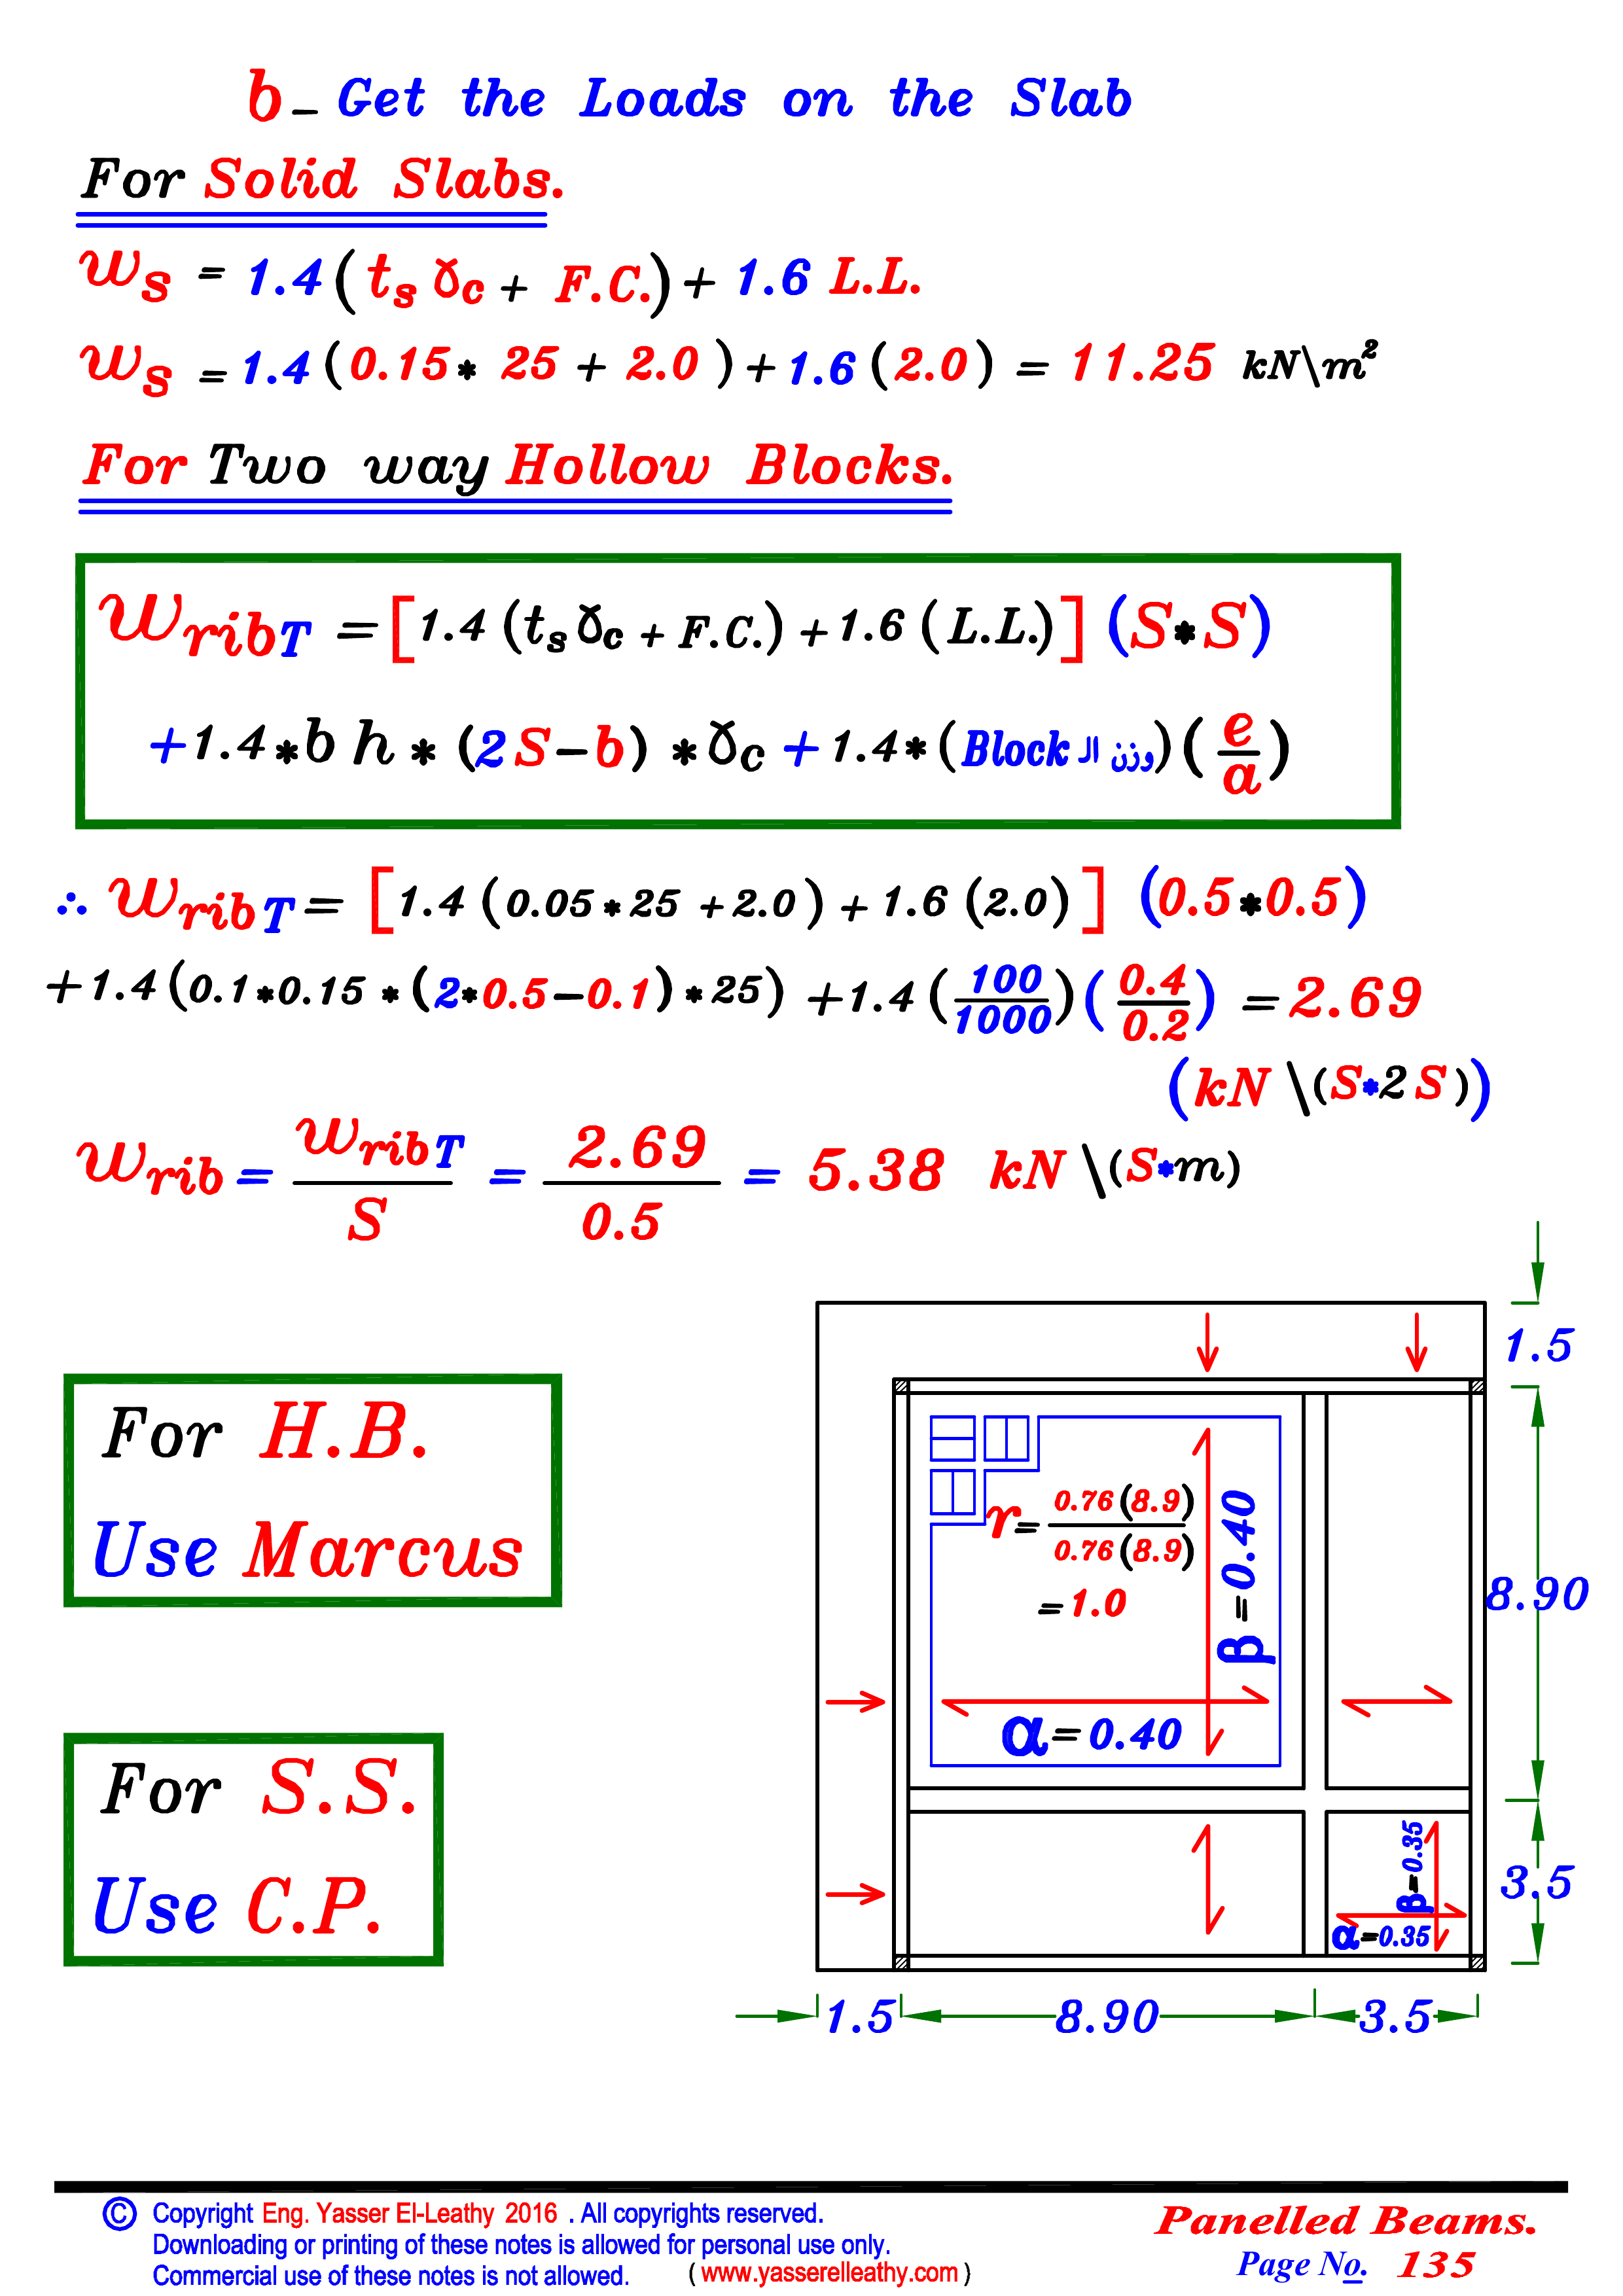 b - Get the Loads on the Slab
For Solid Slabs.
ws = 1.4 ( ts γc + F.C. ) + 1.6 L.L.
ws = 1.4 ( 0.15 * 25 + 2.0 ) + 1.6 ( 2.0 ) = 11.25 kN\m²
For Two way Hollow Blocks.
w rib T = [ 1.4 ( ts γc + F.C. ) + 1.6 ( L.L. ) ] ( S * S )
+ 1.4 * b h * ( 2 S - b ) * γc + 1.4 * ( وزن الـ Block ) ( e / a )
∴ w rib T = [ 1.4 ( 0.05 * 25 + 2.0 ) + 1.6 ( 2.0 ) ] ( 0.5 * 0.5 )
+ 1.4 ( 0.1 * 0.15 * ( 2 * 0.5 - 0.1 ) * 25 ) + 1.4 ( 100 / 1000 ) ( 0.4 / 0.2 ) = 2.69
( kN \ ( S * 2 S ) )
w rib = w rib T / S = 2.69 / 0.5 = 5.38 kN \ ( S * m )
1.5
For H.B.
Use Marcus
r = 0.76 ( 8.9 ) / 0.76 ( 8.9 )
= 1.0
β = 0.40
8.90
α = 0.40
For S.S.
Use C.P.
β = 0.35
3.5
α = 0.35
1.5 8.90 3.5
© Copyright Eng. Yasser El-Leathy 2016 . All copyrights reserved.
Downloading or printing of these notes is allowed for personal use only.
Commercial use of these notes is not allowed. ( www.yasserelleathy.com )
Panelled Beams.
Page No. 135